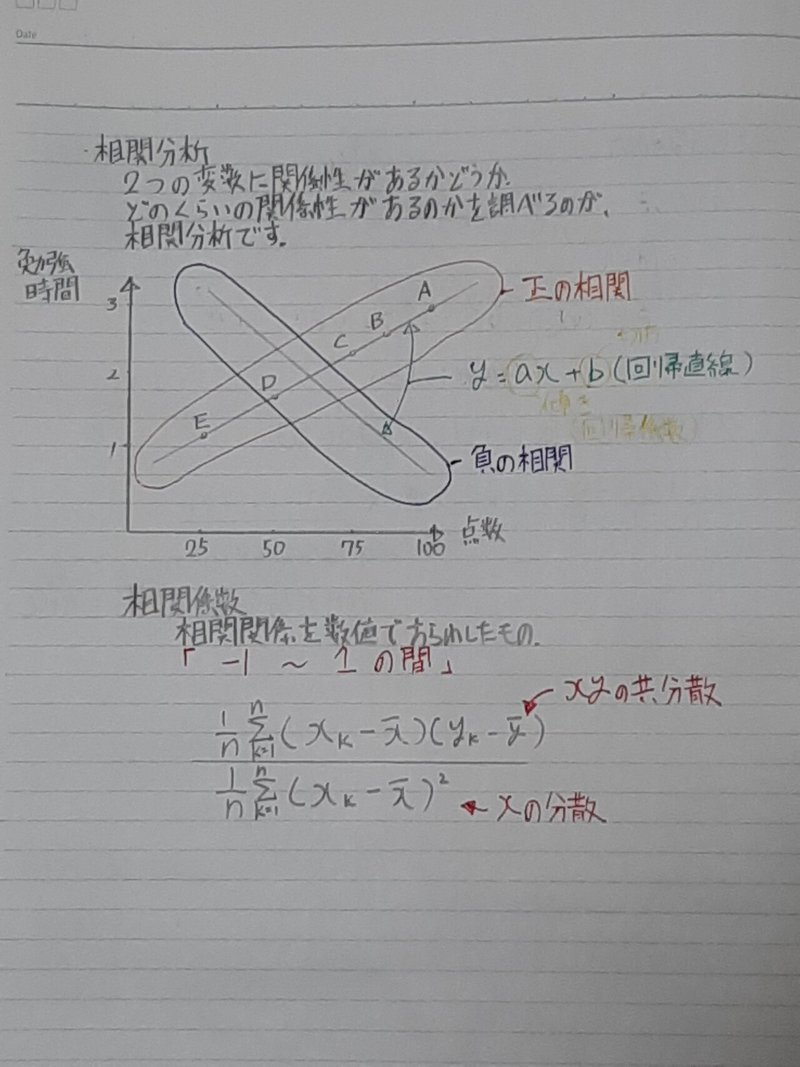 Date
・相関分析
2つの変数に関係性があるかどうか、
どのくらいの関係性があるのかを調べるのが、
相関分析です。
勉強
時間
3
2
1
A
B
C
D
E
正の相関
y=ax+b(回帰直線)
傾き
(回帰係数)
負の相関
25 50 75 100 点数
相関係数
相関関係を数値であらわしたもの.
「 -1 ~ 1 の間」
xyの共分散
1/n Σ_{k=1}^{n} (x_k - x̄)(y_k - ȳ)
1/n Σ_{k=1}^{n} (x_k - x̄)²
xの分散